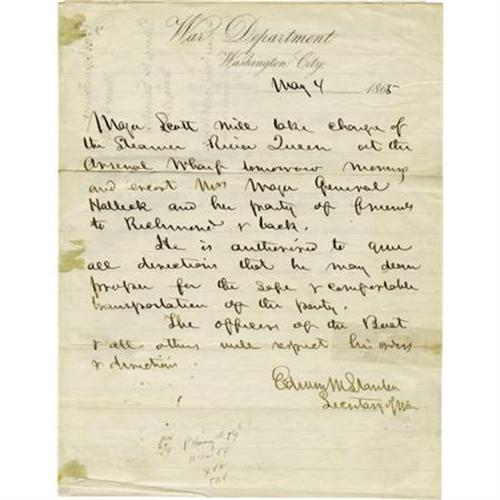 War Department
Washington City,
May 4 1865
Major Scott will take charge of
the Steamer River Queen at the
Arsenal Wharf tomorrow morning
and escort Mrs Major General
Halleck and her party of friends
to Richmond & back.
He is authorized to give
all directions that he may deem
proper for the safe & comfortable
transportation of the party.
The officers of the Boat
& all others will respect his orders
& directions.
Edwin M Stanton
Secretary of War